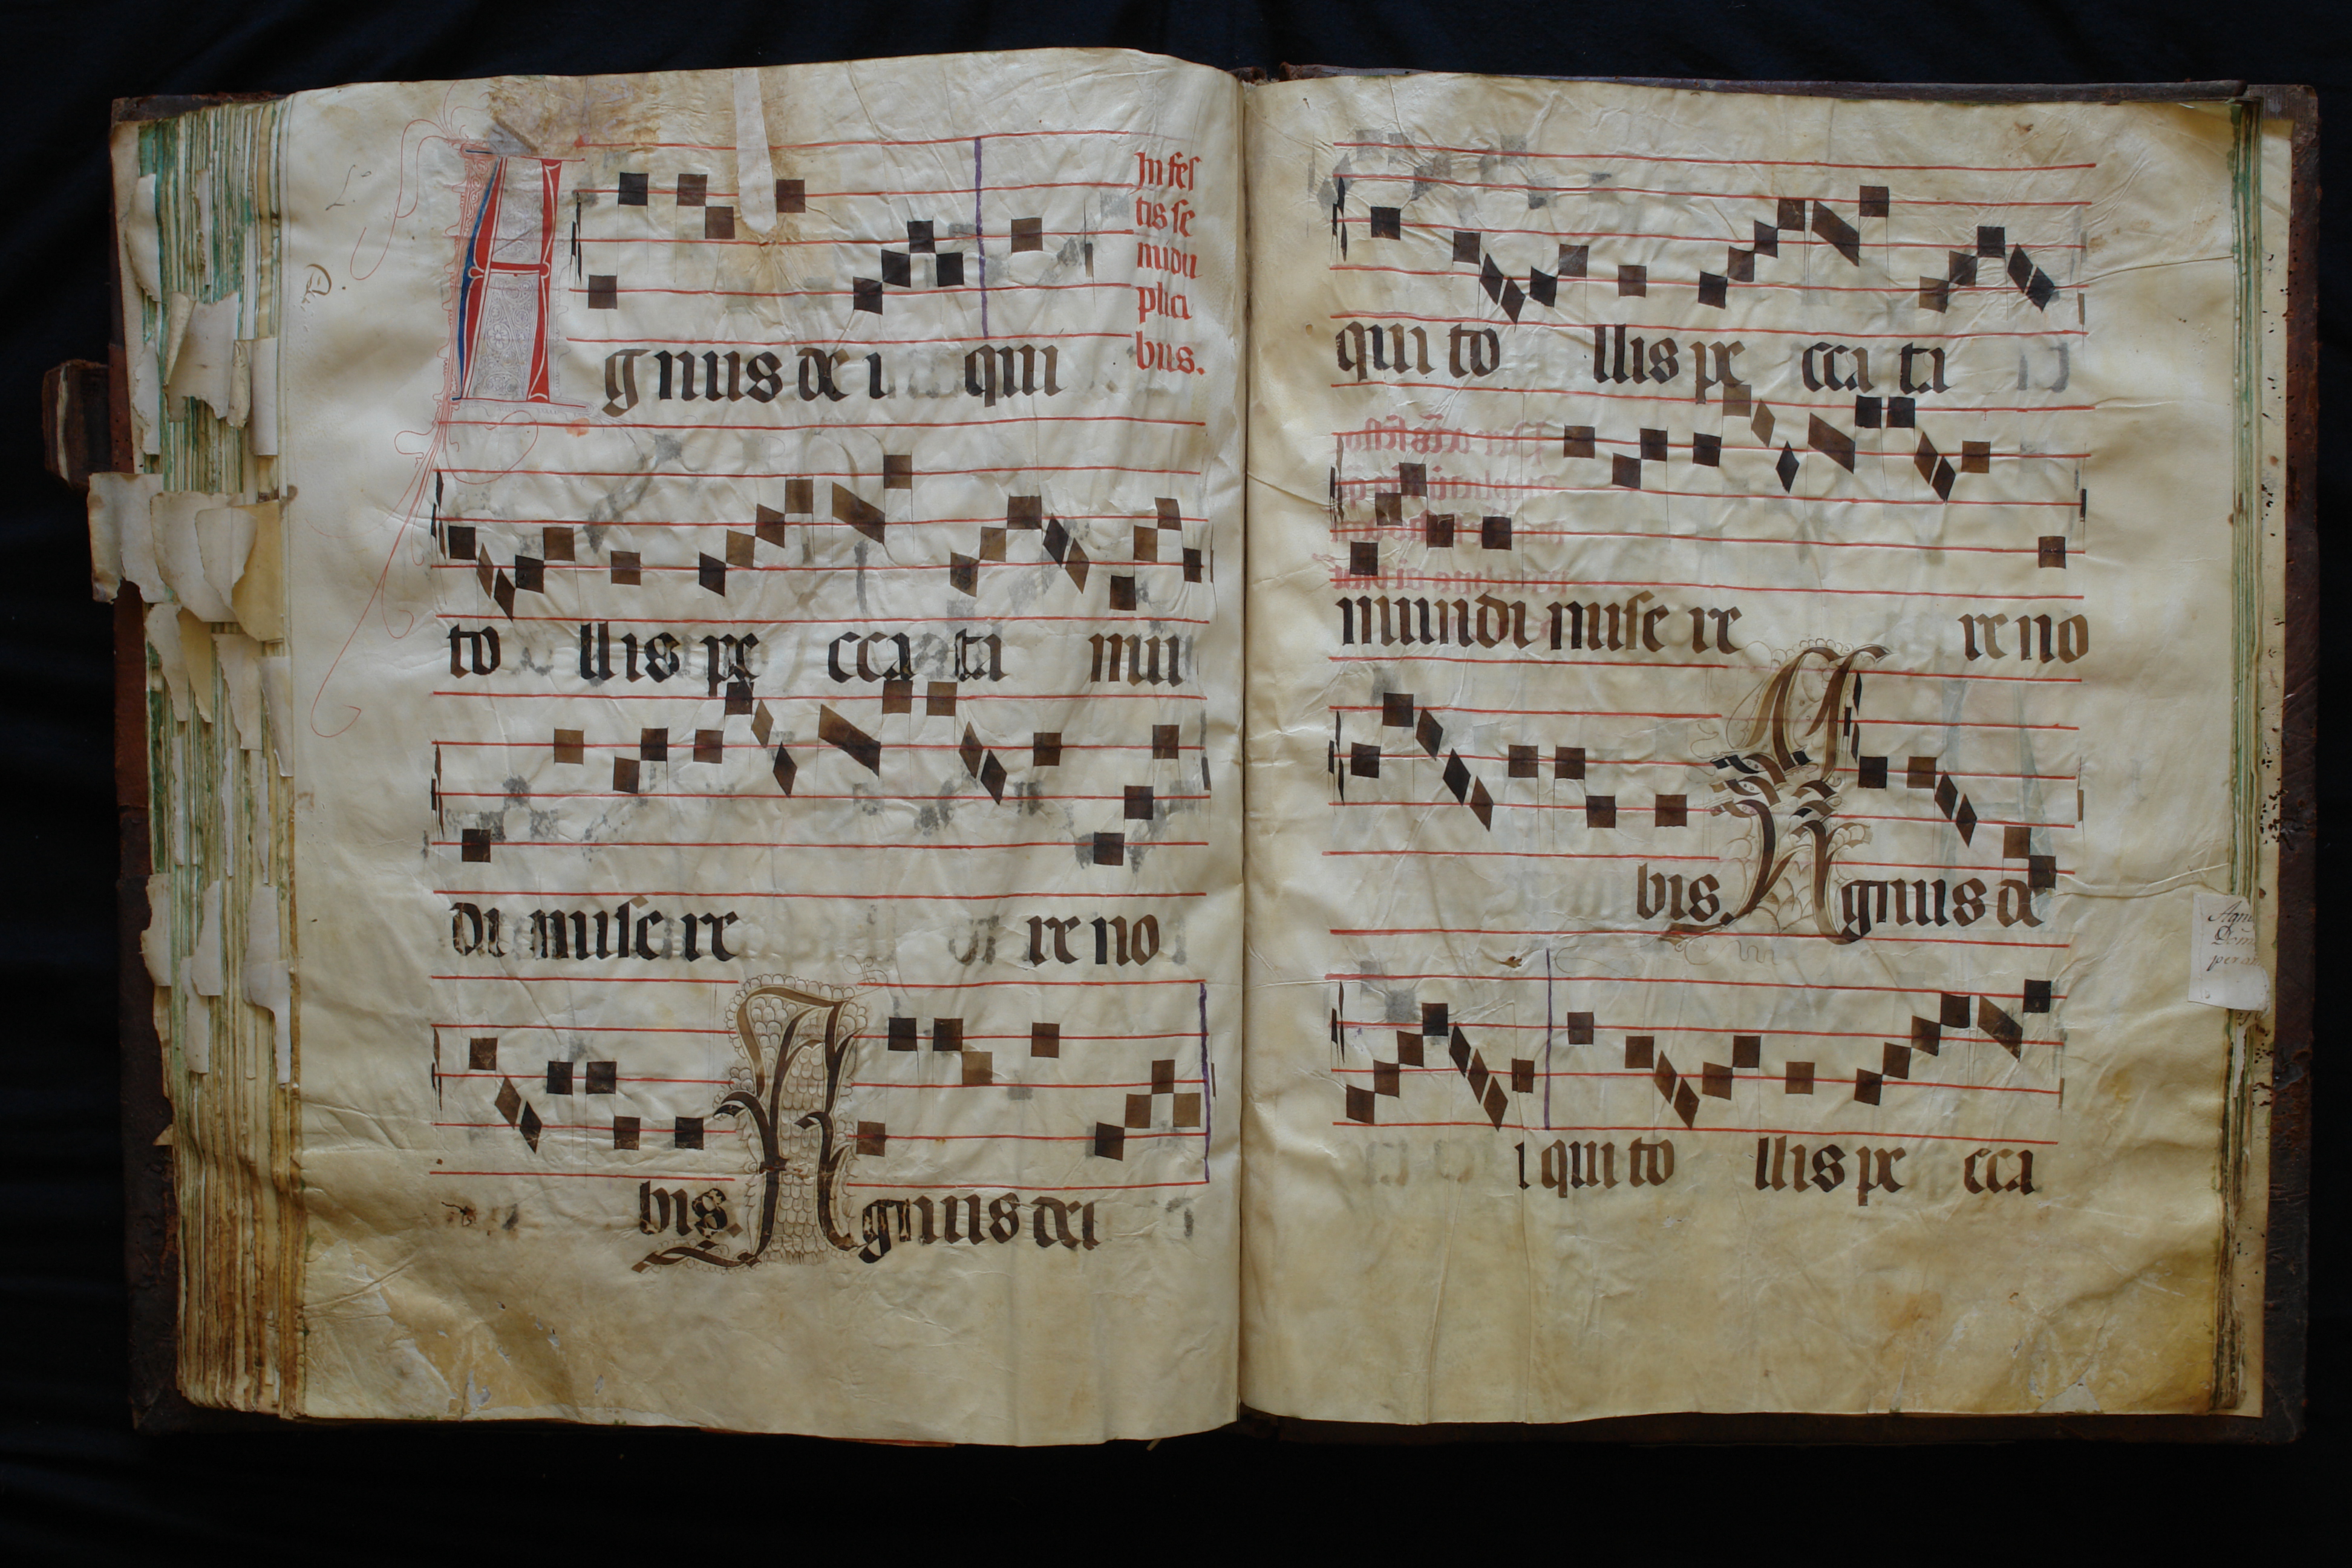 In fes
tis se
midu
plici
bus.
Agnus de i qui
to llis pe cca ta mu
di mise re re no
bis. Agnus dei
qui to llis pe cca ta
mundi mise re re no
bis. Agnus de
i qui to llis pe cca
Agn
Dom
per an